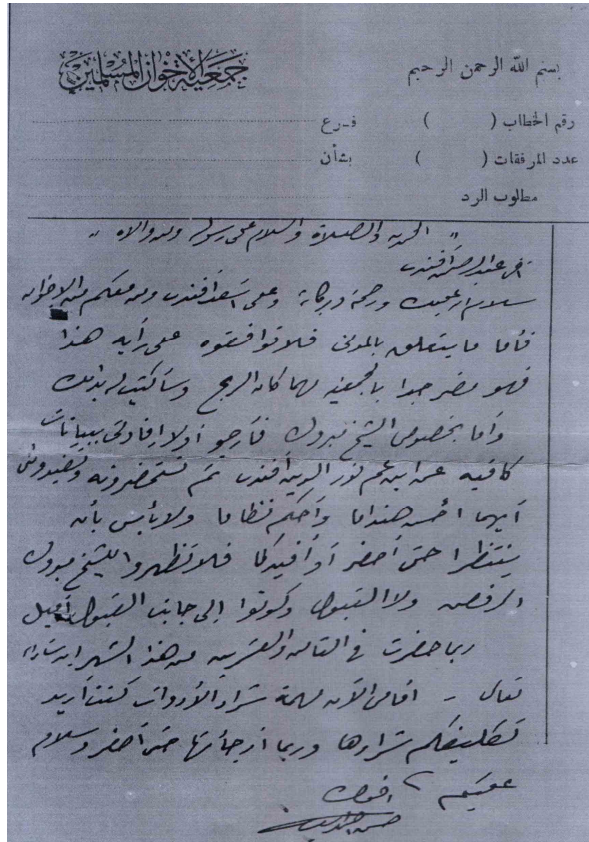 بسم الله الرحمن الرحيم
جمعية الاخوان المسلمين
رقم الخطاب ( ) فرع
عدد المرفقات ( ) بشأن
مطلوب الرد
" الحمد لله والصلاة والسلام على رسول الله ومن والاه "
أخي عبد الرحمن أفندي
سلام الله عليك ورحمته وبركاته وعلى أسعد أفندي ومن معكم من الإخوان
فأما ما يتعلق بالمدني فلا توافقوه على رأيه هذا
فهو مضر جدا بالجمعية مهما كان الربح وسأكتب له بذلك
وأما بخصوص الشيخ مبروك فأرجو أولا إفادتي ببيانات
كافية عن ابن عم نور الدين أفندي ثم تستحضرونه وتفيدونني
أيهما أحسن هنداما وأحكم نظاما ولا بأس بأن
ينتظرا حتى أحضر أو أفيدكما فلا تظهروا للشيخ مبروك
الرفض ولا القبول وكونوا إلى جانب القبول أميل
ربما حضرت في الثامن والعشرين من هذا الشهر إن شاء الله
تعالى - أمامي الآن مهمة شراء الأدوات كنت أريد
تكليفكم شراءها وربما أرجأتها حتى أحضر وسلام
عليكم أخوك
حسن البنا